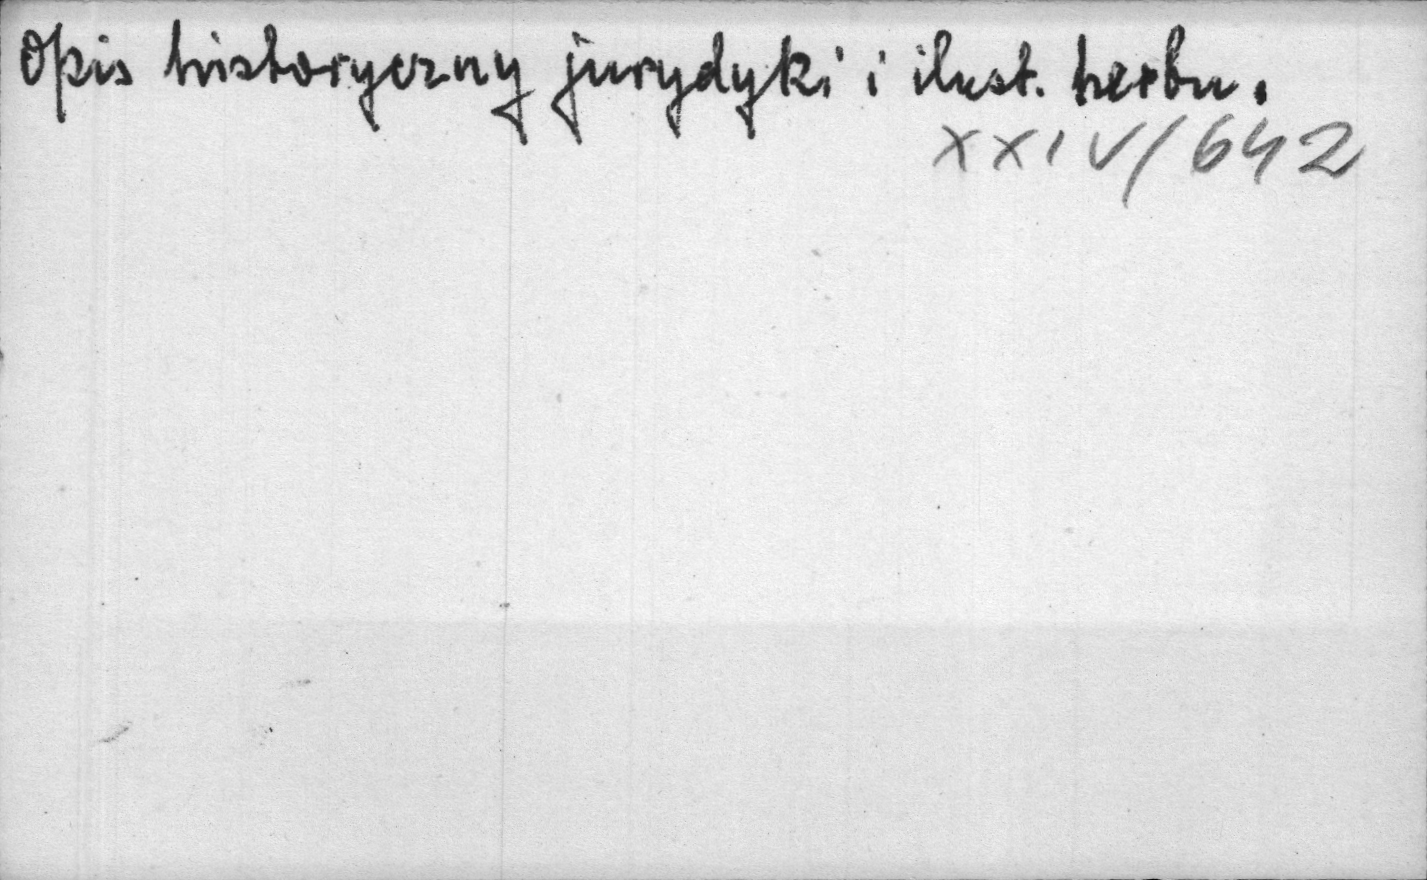 Opis historyczny jurydyki i ilust. herbu.
XXIV/642